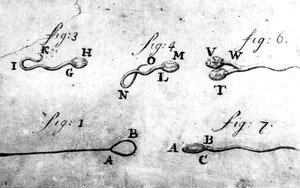 fig: 3 fig: 4 fig: 6.
K H O M V W
I G L T
N
fig: 1 fig: 7.
B A B
A C